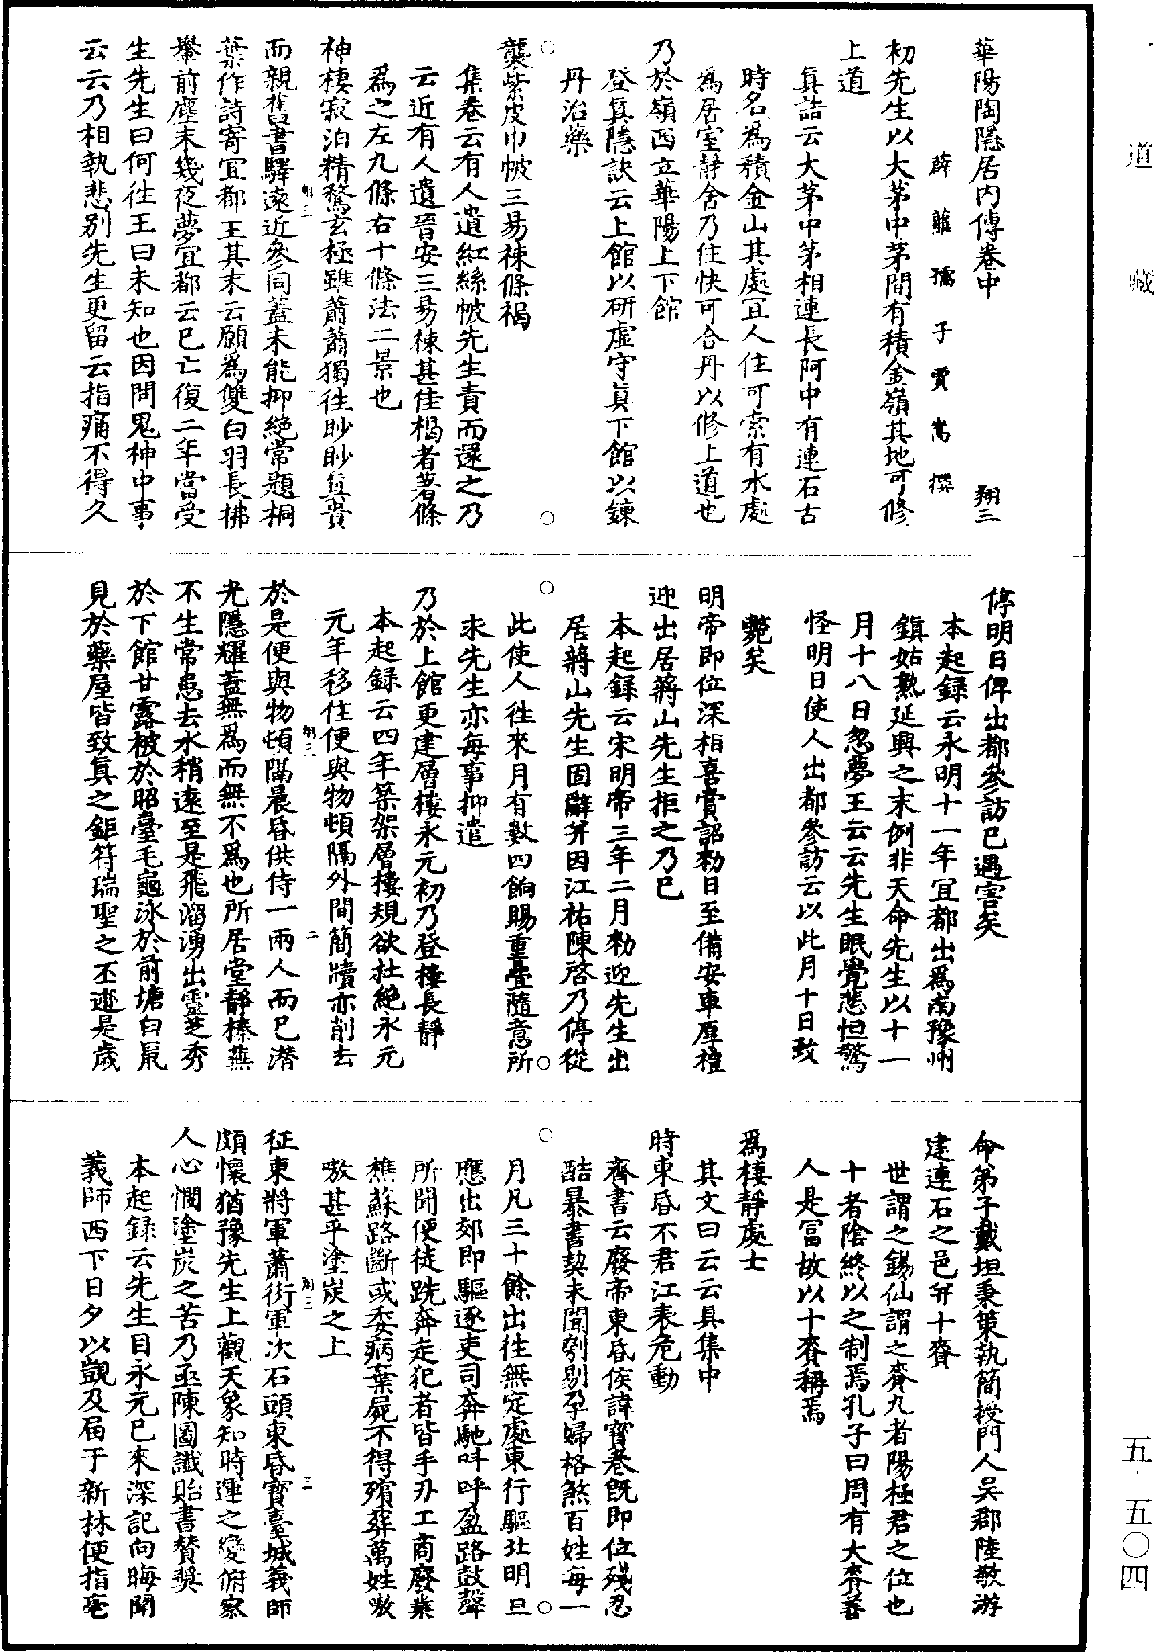 道藏
五·五〇四
華陽陶隱居内傳卷中 翔三
薛蘿孺子賈嵩撰
初先生以大茅中茅間有積金嶺其地可修
上道
真誥云大茅中茅相連長阿中有連石古
時名為積金山其處宜人住可索有水處
為居室靜舍乃住快可合丹以修上道也
乃於嶺西立華陽上下館
登真隱訣云上館以研虛守真下館以鍊
丹治藥
襲紫皮巾帔三易楝條褐
集卷云有人遺紅絲帔先生責而還之乃
云近有人遺晉安三易楝甚佳褐者著條
為之左九條右十條法二景也
神棲寂泊精騖玄極雖蕭蕭獨往眇眇真賞
而親舊書驛遠近參同蓋未能抑絕常題桐
葉作詩寄宜都王其末云願為雙白羽長拂
轝前塵末幾夜夢宜都云已亡復二年當受
生先生曰何往王曰未知也因問鬼神中事
云云乃相執悲別先生更留云指痛不得久
停明日俾出都參訪已遇害矣
本起録云永明十一年宜都出為南豫州
鎮姑熟延興之末例非天命先生以十一
月十八日忽夢王云云先生眠覺悲怛驚
怪明日使人出都參訪云以此月十日致
斃矣
明帝即位深相喜賞詔勑日至備安車厚禮
迎出居蔣山先生拒之乃已
本起録云宋明帝三年二月勑迎先生出
居蔣山先生固辭并因江祏陳啓乃停從
此使人往來月有數四餉賜重疊隨意所
求先生亦每事抑遣
乃於上館更建層樓永元初乃登樓長靜
本起録云四年築架層樓規欲杜絕永元
元年移住便與物頓隔外間簡牘亦削去
於是便與物頓隔晨昏供侍一兩人而已潛
光隱耀蓋無為而無不為也所居堂靜榛蕪
不生常患去水稍遠至是飛溜湧出靈芝秀
於下館甘露被於昭臺毛龜泳於前塘白鼠
見於藥屋皆致真之鉅符瑞聖之丕迹是歲
命弟子戴坦秉策執簡授門人吳郡陸敬游
建連石之邑并十賚
世謂之錫仙謂之賚九者陽極君之位也
十者陰終以之制焉孔子曰周有大賚善
人是富故以十賚稱焉
為棲靜處士
其文曰云云具集中
時東昏不君江表危動
齊書云廢帝東昏侯諱寶卷既即位殘忍
酷暴書契未聞刳剔孕婦格煞百姓每一
月凡三十餘出往無定處東行驅北明旦
應出郊即驅逐吏司奔馳叫呼盈路鼓聲
所聞便徒跣奔走犯者皆手刃工商廢業
樵蘇路斷或委病棄屍不得殯葬萬姓嗷
嗷甚乎塗炭之上
征東將軍蕭衍軍次石頭東昏寶臺城義師
頗懷猶豫先生上觀天象知時運之變俯察
人心憫塗炭之苦乃亟陳圖讖貽書贊奬
本起録云先生自永元已來深記向晦聞
義師西下日夕以覬及届于新林便指毫